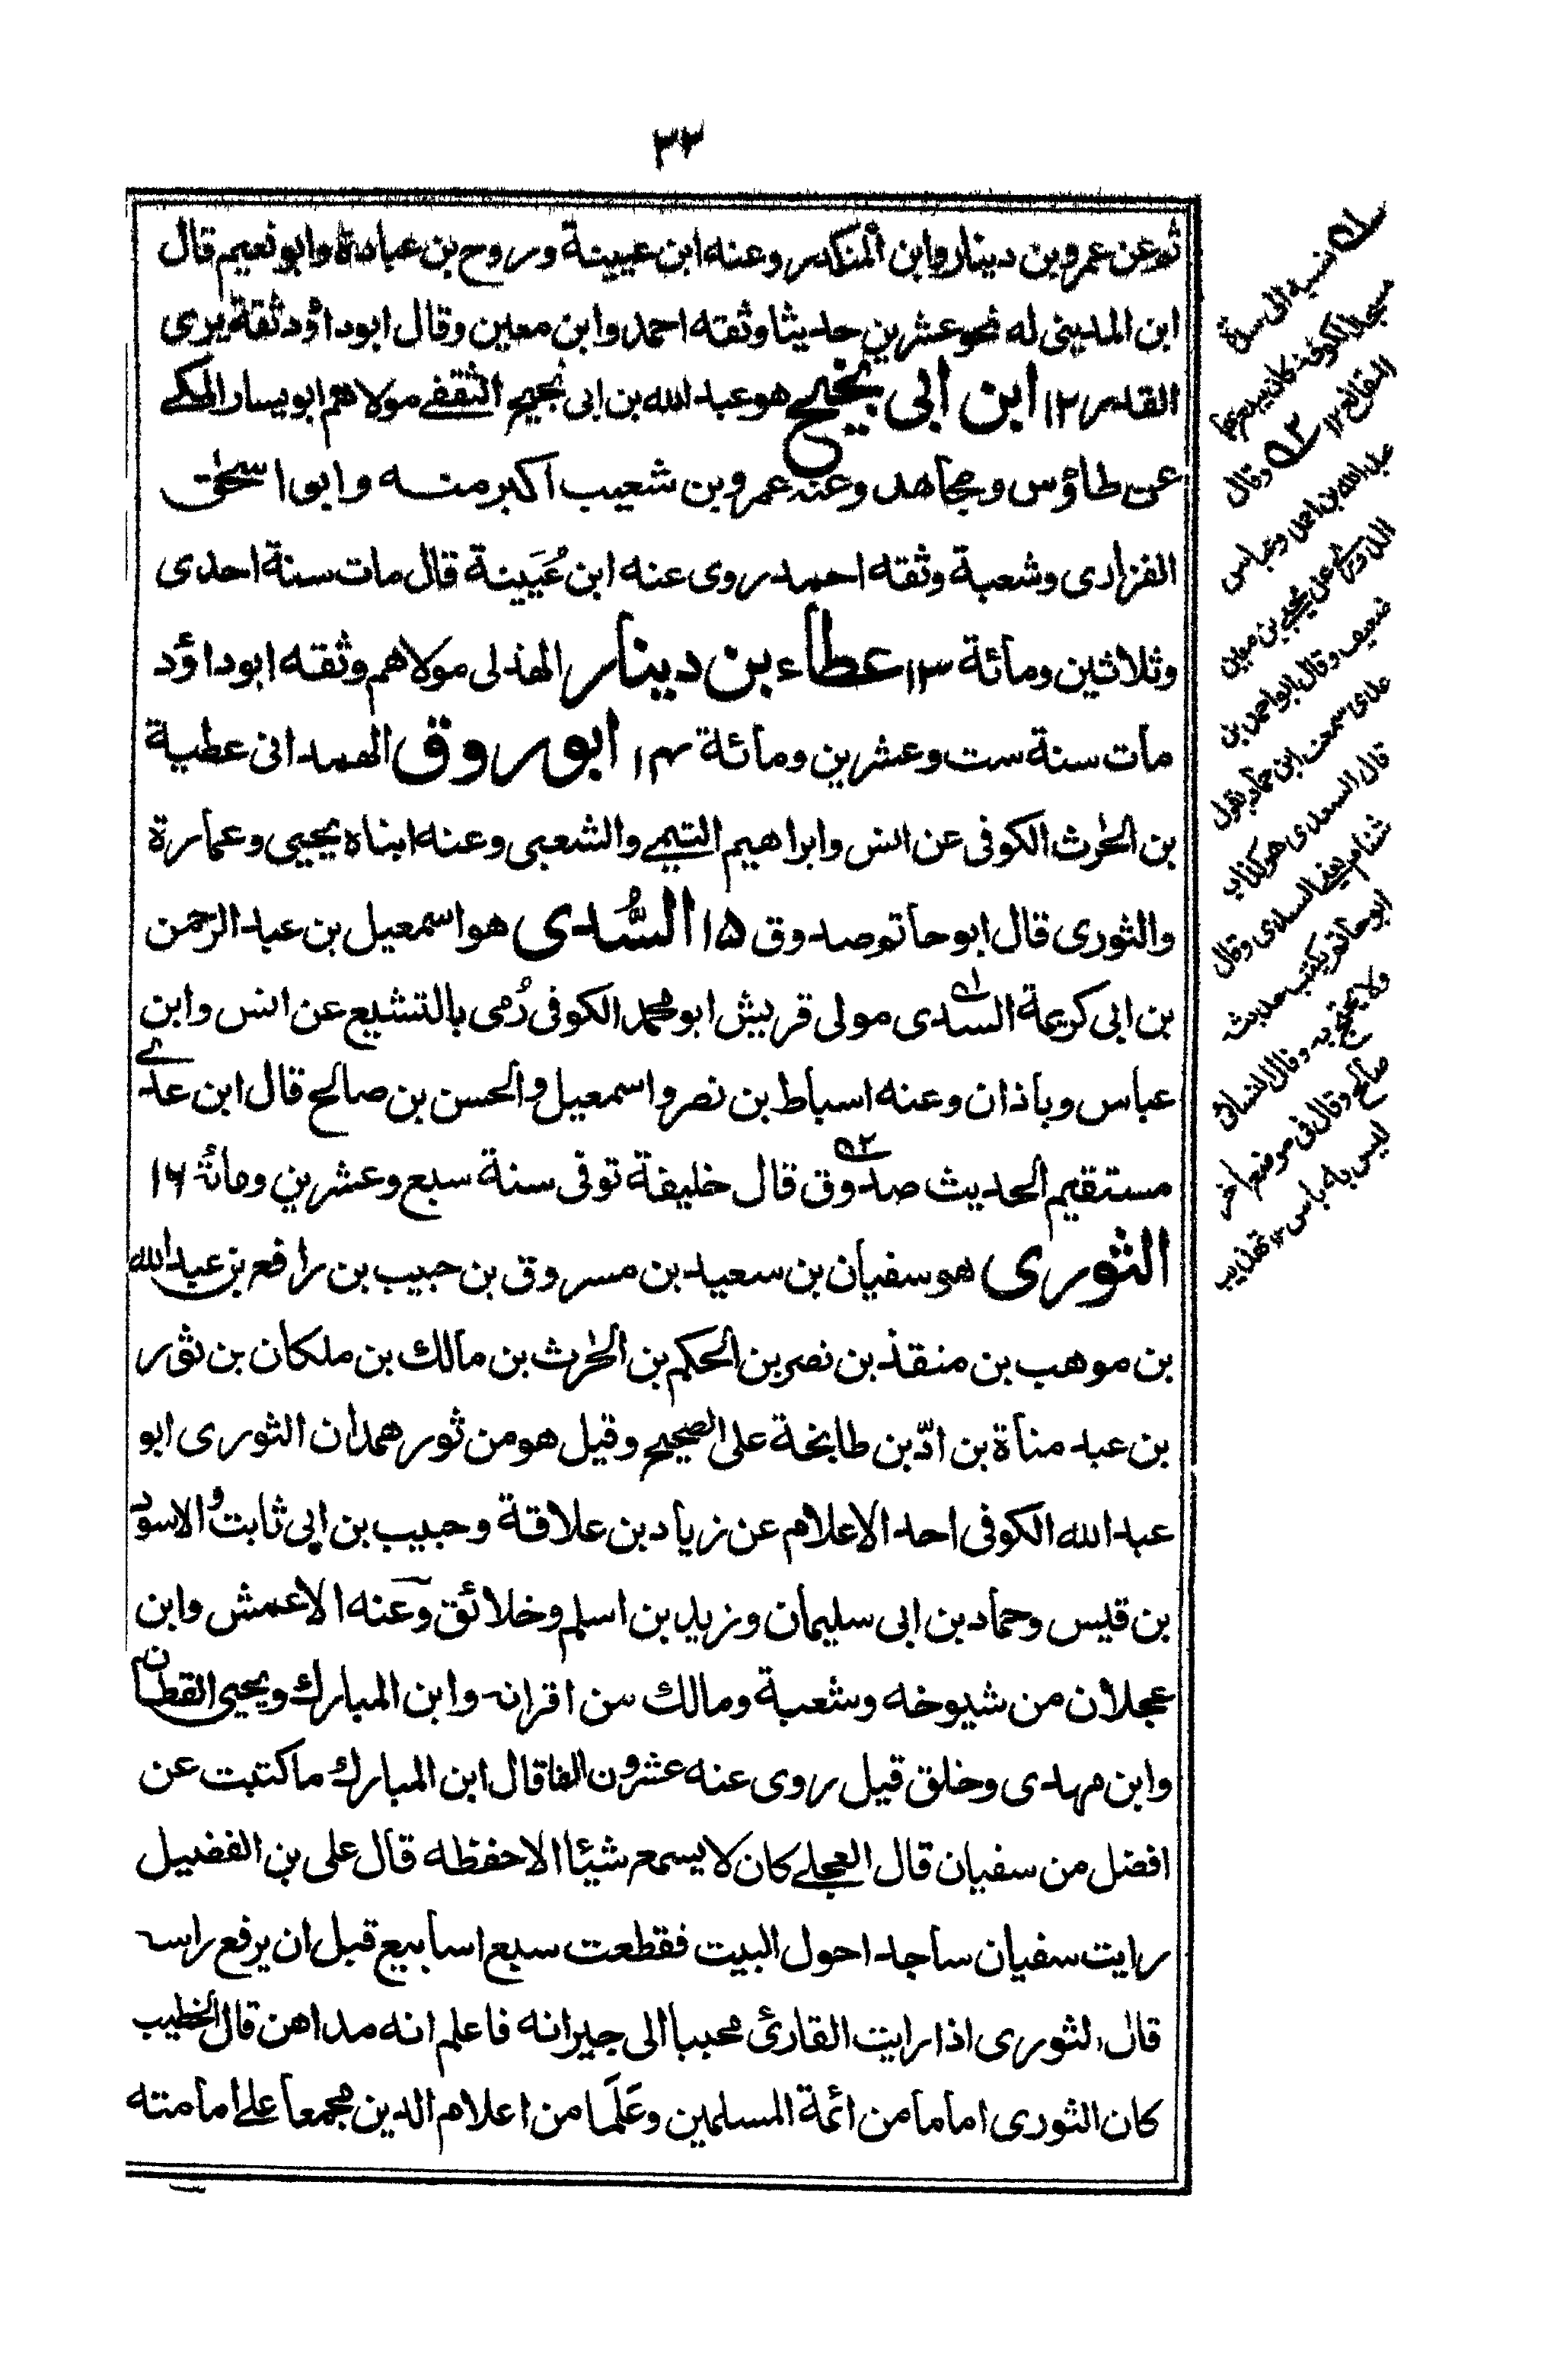 ٣٢
ثم عن عمرو بن دينار وابن المنكدر وعنه ابن عيينة وروح بن عبادة وابو نعيم قال
ابن المديني له نحو عشرين حديثا وثقه احمد وابن معين وقال ابو داؤد ثقة يرى
القدر ١٢ ابن ابى نجيح هو عبد الله بن ابى نجيح الثقفے مولاهم ابو يسار المكے
عن طاؤس ومجاهد وعنه عمرو بن شعيب اكبر منه وابو اسحٰق
الفزارى وشعبة وثقه احمد روى عنه ابن عُيَينة قال مات سنة احدى
وثلاثين ومائة ١٣ عطاء بن دينار الهذلى مولاهم وثقه ابو داؤد
مات سنة ست وعشرين ومائة ١٤ ابو روق الهمدانى عطية
بن الحٰرث الكوفى عن انس وابراهيم التيمے والشعبى وعنه ابناه يحيى وعمارة
والثورى قال ابو حاتم صدوق ١٥ السُّدى هو اسمعيل بن عبد الرحمن
بن ابى كريمة السدى مولى قريش ابو محمد الكوفى رُمى بالتشيع عن انس وابن
عباس وباذان وعنه اسباط بن نصر واسمعيل والحسن بن صالح قال ابن عدے
مستقيم الحديث صدوق قال خليفة توفى سنة سبع وعشرين ومائة ١٦
الثورى هو سفيان بن سعيد بن مسروق بن حبيب بن رافع بن عبد الله
بن موهب بن منقذ بن نصر بن الحكم بن الحٰرث بن مالك بن ملكان بن ثور
بن عبد مناة بن ادّ بن طابخة على الصحيح وقيل هو من ثور همدان الثورى ابو
عبد الله الكوفى احد الاعلام عن زياد بن علاقة وحبيب بن ابى ثابت والاسود
بن قيس وحماد بن ابى سليمان وزيد بن اسلم وخلائق وعنه الاعمش وابن
عجلان من شيوخه وشعبة ومالك من اقرانه وابن المبارك ويحيى القطان
وابن مهدى وخلق قيل روى عنه عشرون الفا قال ابن المبارك ما كتبت عن
افضل من سفيان قال العجلے كان لا يسمع شيئا الا حفظه قال على بن الفضيل
رايت سفيان ساجدا حول البيت فقطعت سبع اسابيع قبل ان يرفع راسه
قال الثورى اذا رايت القارئ محببا الى جيرانه فاعلم انه مداهن قال الخطيب
كان الثورى اماما من ائمة المسلمين وعَلَما من اعلام الدين مجمعا علے امامته
لـه نسبة الى سدة
مسجد الكوفة كان يبيع بها
المقانع ١٢ ٢ـه وقال
عبد الله بن احمد وعباس
الدورى عن يحيى بن معين
ضعيف وقال ابو احمد بن
عدى سمعت ابن حماد يقول
قال السعدى هو كذاب
شتام يعنى السدى وقال
ابو حاتم يكتب حديثه
ولا يحتج به وقال النسائى
صالح وقال فى موضع آخر
ليس به باس ١٢ تهذيب